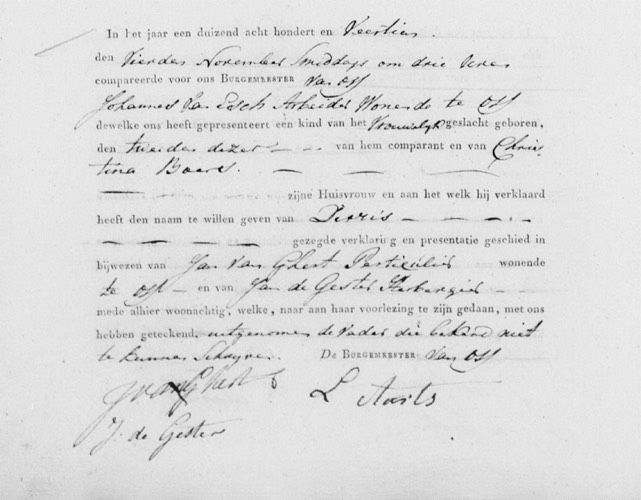 In het jaar een duizend acht hondert en Veertien.
den Vierden November Smiddags om drie Uren
compareerde voor ons BURGEMEESTER Van Oss
Johannes Van Esch Arbeider Wonende te Oss
dewelke ons heeft gepresenteert een kind van het Vrouwelyk geslacht geboren,
den tweeden dezer — — van hem comparant en van Chris-
tina Boers. — — — —
— — — zijne Huisvrouw en aan het welk hij verklaard
heeft den naam te willen geven van Dirris — — —
— — — — gezegde verklaring en presentatie geschied in
bijwezen van Jan Van Ghert Particulier wonende
te Oss — en van Jan de Gester Herbergier —
mede alhier woonachtig, welke, naar aan haar voorlezing te zijn gedaan, met ons
hebben geteekend, uitgenomen de Vader die bekend niet
te kunnen Schryven. De BURGEMEESTER Van Oss
J van Ghert
L Aarts
J. de Gester